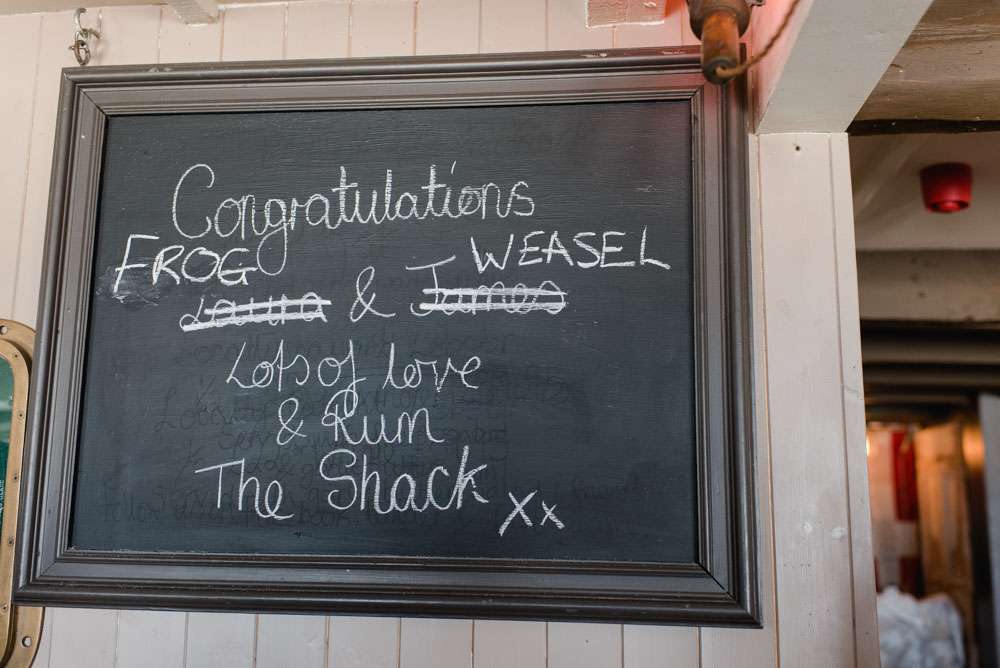 Congratulations
FROG WEASEL
Laura & James
Lots of love
& Rum
The Shack
Xx